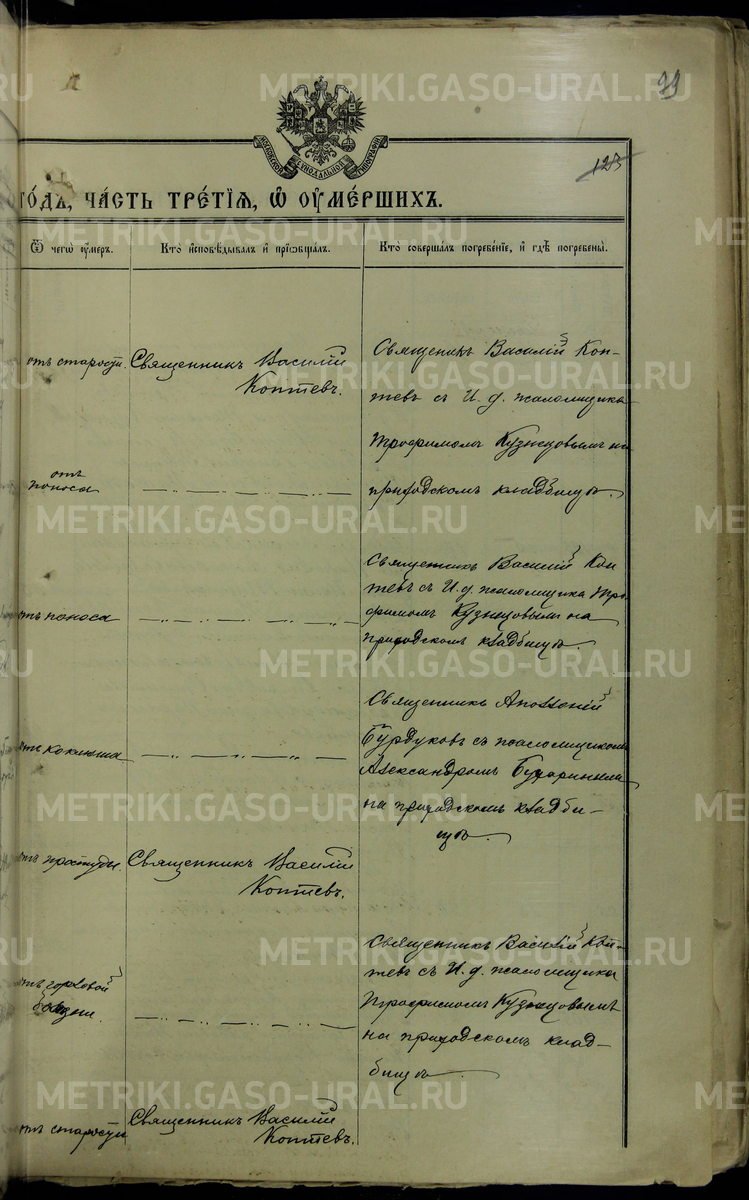 79
123
МОСКОВСКОЙ СѴНОДАЛЬНОЙ ТИПОГРАФІИ
го́дъ, ча́сть тре́тїѧ, ѡ҆ ᲂу҆ме́ршихъ.
Ѿ чегѡ̀ ᲂу҆́меръ.
Кто̀ и҆сповѣ́дывалъ и҆ прїѡбща́лъ.
Кто̀ соверша́лъ погребе́нїе, и҆ гдѣ̀ погребены̀.
отъ старости.
Священникъ Василій
Коптевъ.
Священикъ Василій Коп-
тевъ съ И. д. псаломщика
Трофимомъ Кузнецовымъ на
приходскомъ кладбищѣ.
отъ
поноса
Священникъ Василій Коп
тевъ съ И. д. псаломщика Тро-
фимомъ Кузнецовымъ на
приходскомъ кладбищѣ.
отъ поноса
Священникъ Аполлоній
Бурдуковъ съ псаломщикомъ
Александромъ
на приходскомъ кладби-
щѣ.
отъ коклюша
отъ простуды.
Священникъ Василій
Коптевъ.
Священникъ Василій Коп-
тевъ съ И. д. псаломщика
Трофимомъ Кузнецовымъ
на приходскомъ клад-
бищѣ.
отъ горловой
болѣзни.
отъ старости
Священникъ Василій
Коптевъ.
METRIKI.GASO-URAL.RU